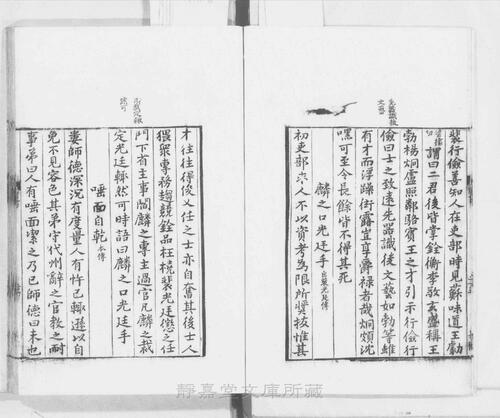 裴行儉善知人在吏部時見蘇味道王勮
謂曰二君後皆掌銓衡李敬玄盛稱王
勃楊炯盧照鄰駱賓王之才引示行儉行
儉曰士之致遠先器識後文藝如勃等雖
有才而浮躁衒露豈享爵祿者哉炯頗沈
嘿可至令長餘皆不得其死
麟之口光廷手
初吏部求人不以資考為限所奬拔惟其
先器識後文藝
才往往得俊乂任之士亦自奮其後士人
猥衆專務趨競銓品枉橈裴光廷懲之任
門下省主事閻麟之專主過官凡麟之裁
定光廷輒然可時語曰麟之口光廷手
唾面自乾 本傳
婁師德深沉有度量人有忤己輒遜以自
免不見容色其弟守代州辭之官教之耐
事弟曰人有唾面潔之乃已師德曰未也
靜嘉堂文庫所藏